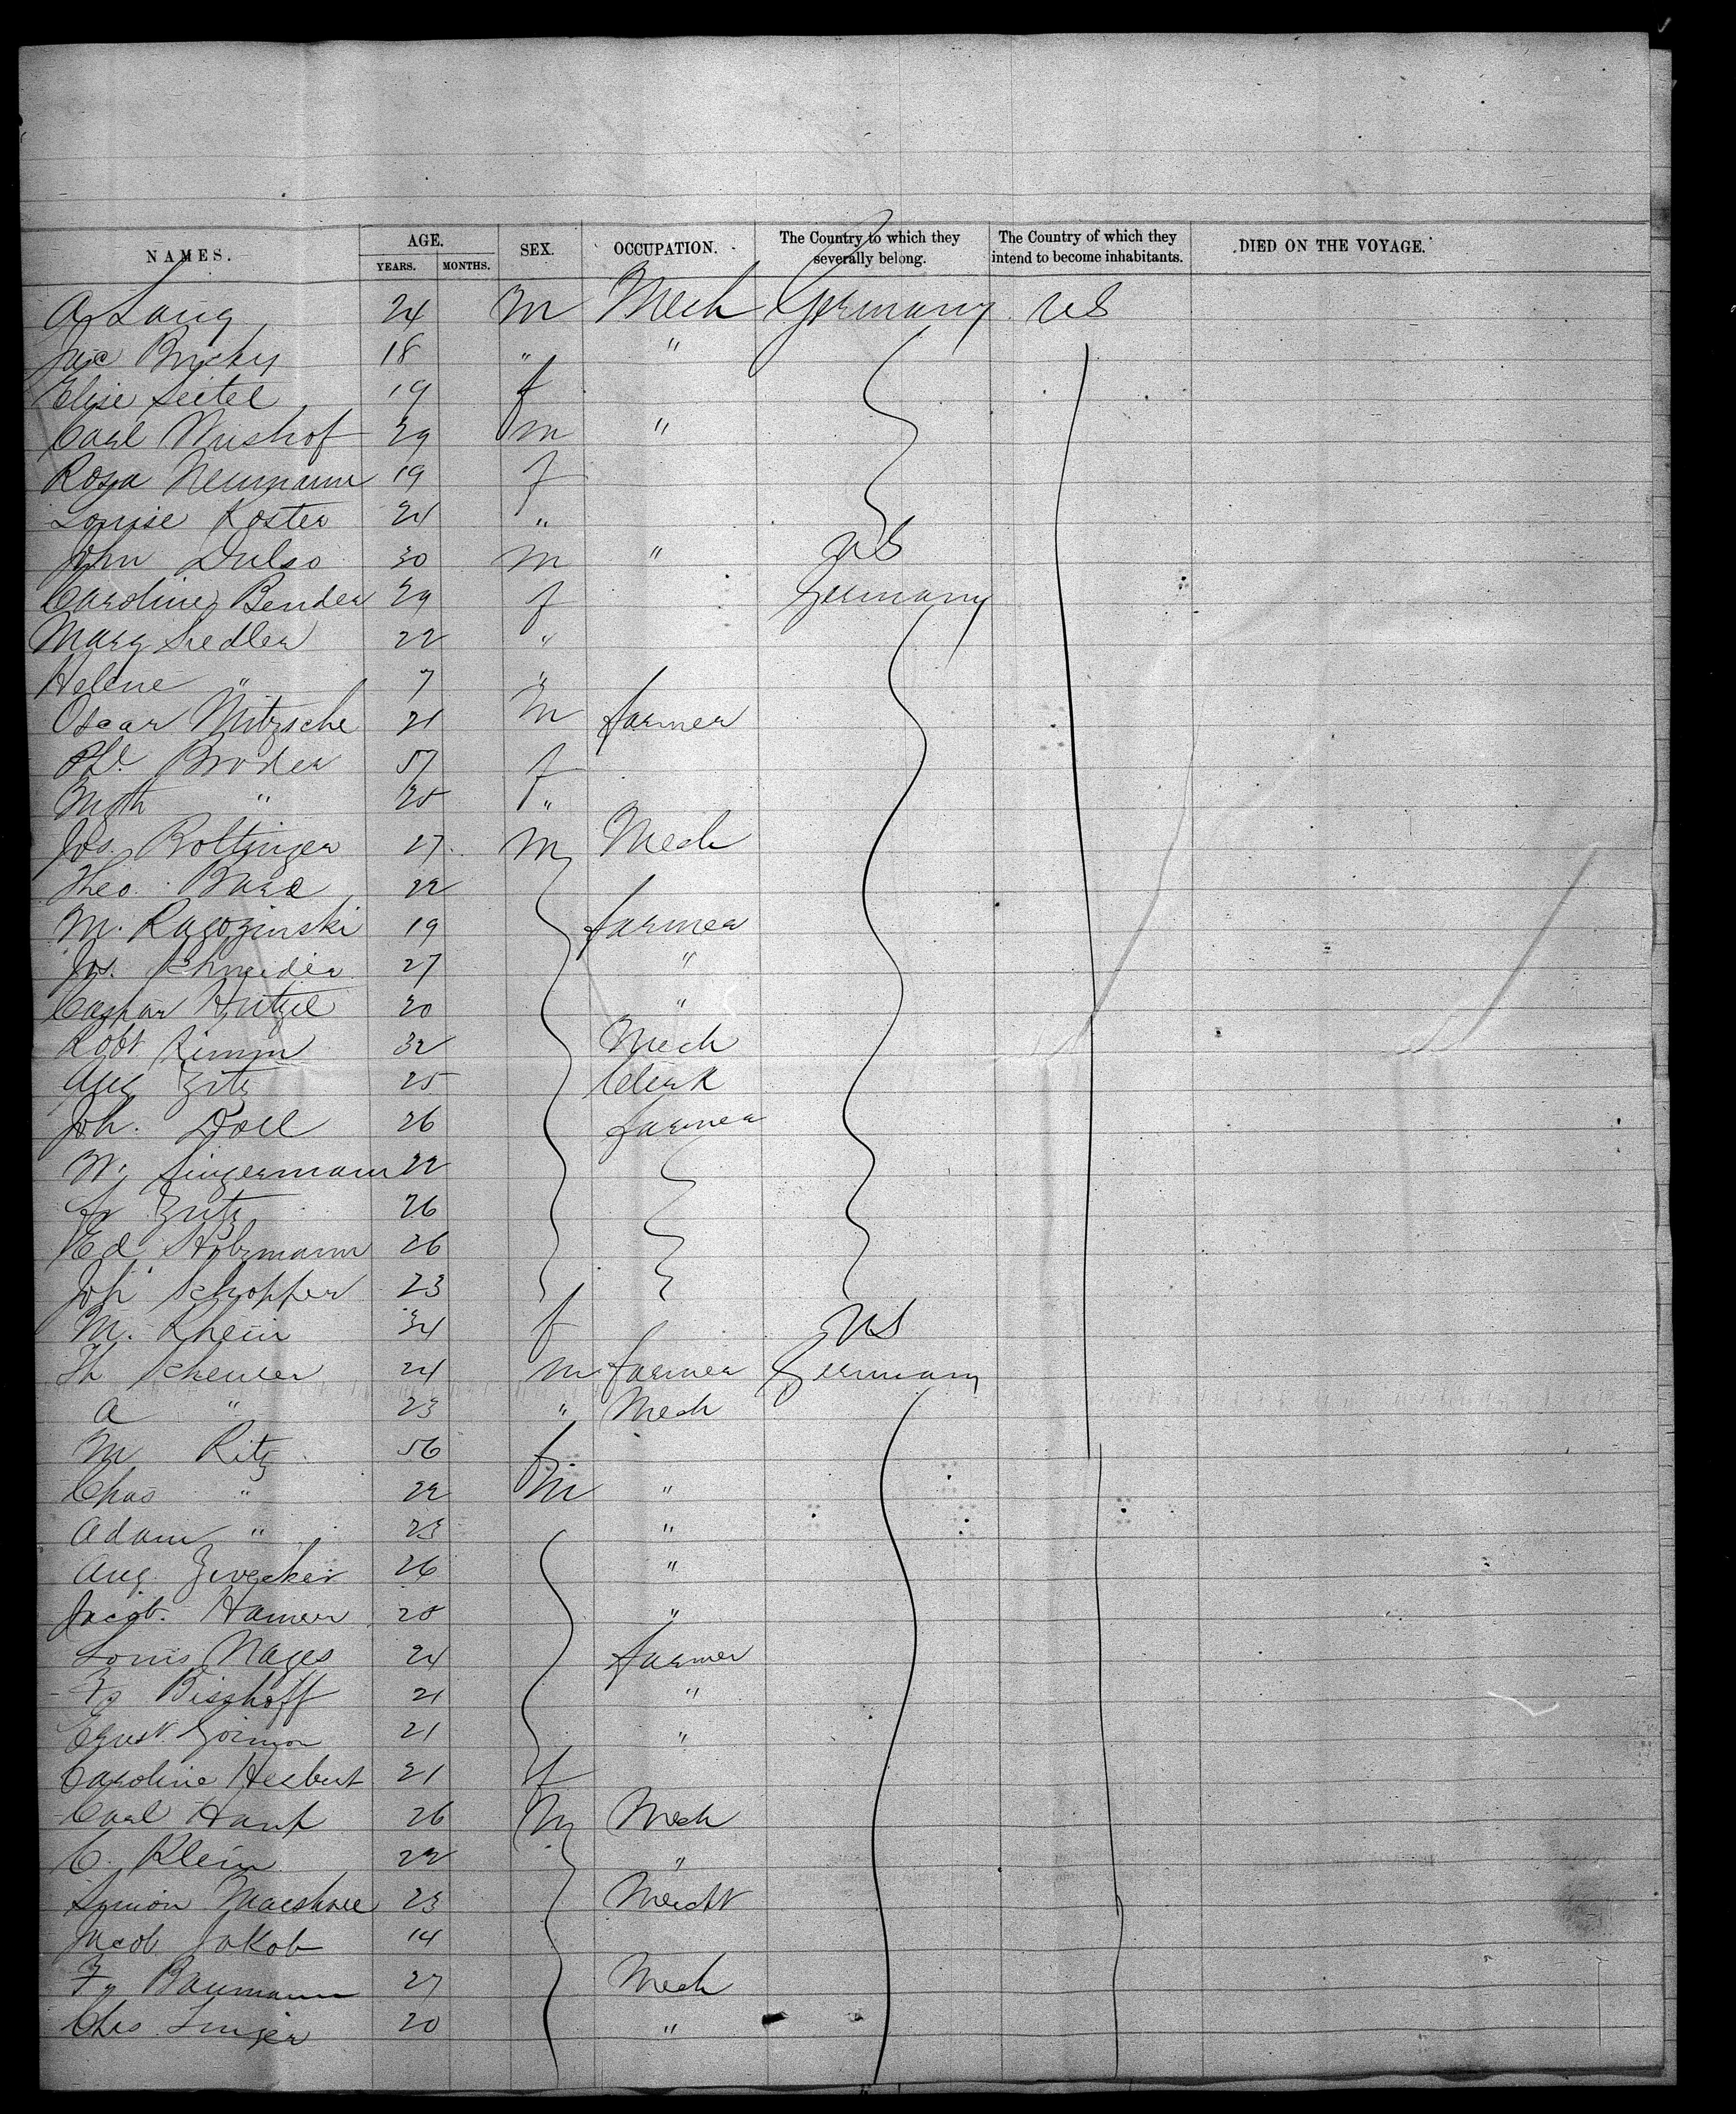 NAMES. AGE. SEX. OCCUPATION. The Country to which they severally belong. The Country of which they intend to become inhabitants. DIED ON THE VOYAGE.
YEARS. MONTHS.
A Lang 24 M Mech Germany US
Jac 18 " "
Elise Seitel 19 f
Carl 29 m "
Rosa Neumann 19 f
Louise Koster 24 "
John Dulso 30 m " US
Caroline Bender 29 f Germany
Mary Siedler 22 "
Helene " 7 "
Oscar Nitzsche 21 m farmer
Broder 57 f
" 20 "
Jos. Bottinger 27 m Mech
Theo. 22
M. Ragozinski 19 farmer
Jos. Schneider 27 "
Caspar Hutzel 20 "
Robt Simm 32 Mech
Aug 25 Clerk
Joh. Doll 26 farmer
W. Singermann 22
Fr 26
Ed Holzmann 26
Joh Schopfer 23
M. Rhein 34 f US
Th Scheurer 24 m farmer Germany
A " 23 " Mech
M Ritz 56 f
Chas " 22 m "
Adam " 23 "
Aug. 26 "
Jacob. Hamer 20 "
Louis Nages 24 farmer
Fz Bischoff 21 "
Ernst. 21 "
Caroline Herbert 21 f
Carl Hauf 26 m Mech
C. Klein 22 "
Symon 23 Mercht
Jacob Jakob 14
Fz Baumann 27 Mech
Chas 20 "